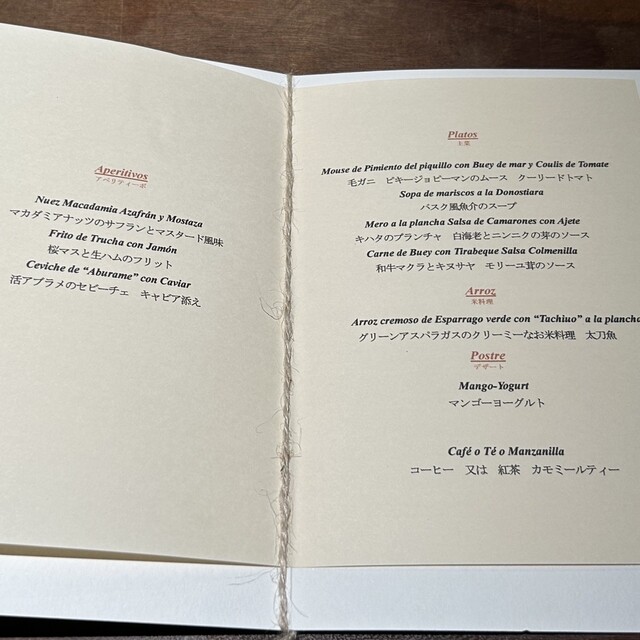 Aperitivos
アペリティーボ
Nuez Macadamia Azafrán y Mostaza
マカダミアナッツのサフランとマスタード風味
Frito de Trucha con Jamón
桜マスと生ハムのフリット
Ceviche de “Aburame” con Caviar
活アブラメのセビーチェ　キャビア添え
Platos
主菜
Mouse de Pimiento del piquillo con Buey de mar y Coulis de Tomate
毛ガニ　ピキージョピーマンのムース　クーリードトマト
Sopa de mariscos a la Donostiara
バスク風魚介のスープ
Mero a la plancha Salsa de Camarones con Ajete
キハタのプランチャ　白海老とニンニクの芽のソース
Carne de Buey con Tirabeque Salsa Colmenilla
和牛マクラとキヌサヤ　モリーユ茸のソース
Arroz
米料理
Arroz cremoso de Esparrago verde con “Tachiuo” a la plancha
グリーンアスパラガスのクリーミーなお米料理　太刀魚
Postre
デザート
Mango-Yogurt
マンゴーヨーグルト
Café o Té o Manzanilla
コーヒー　又は　紅茶　カモミールティー